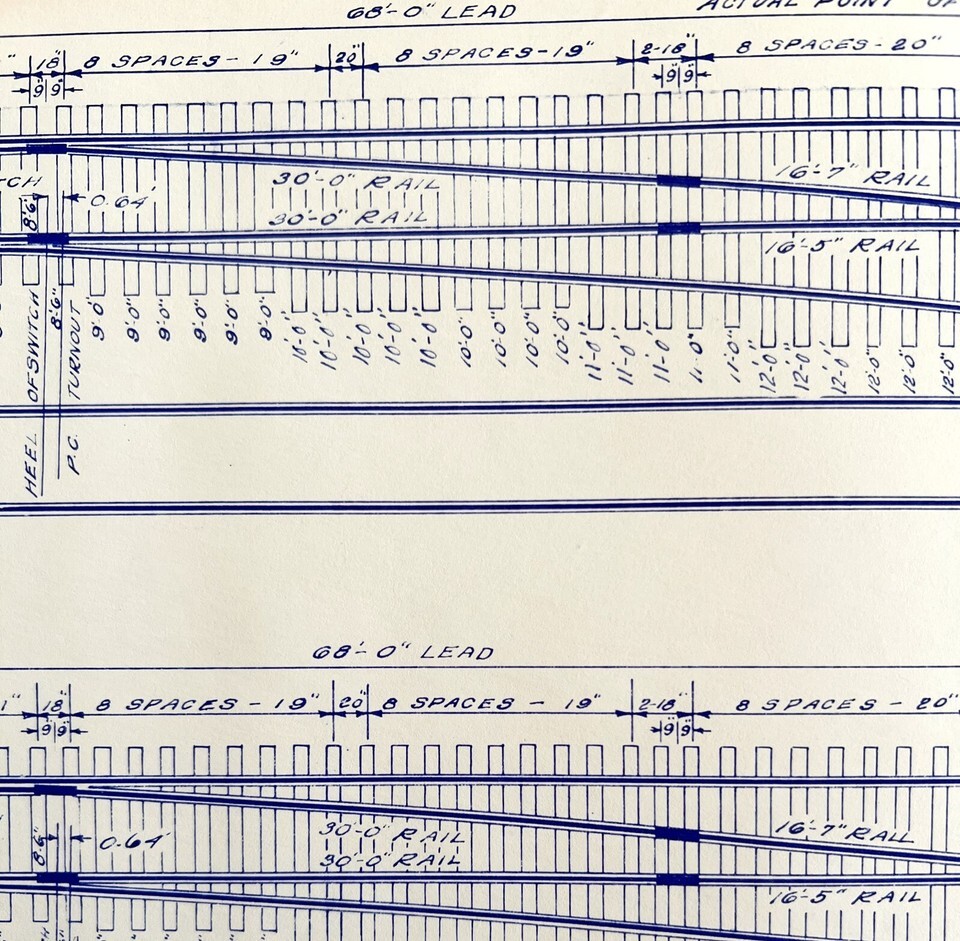 68'-0" LEAD
ACTUAL POINT OF
18" 8 SPACES - 19" 20" 8 SPACES - 19" 2-18" 8 SPACES - 20"
9" 9" 9" 9"
TCH
30'-0" RAIL
16'-7" RAIL
8'-6" 0.64'
30'-0" RAIL
16'-5" RAIL
8'-6" 9'-0" 9'-0" 9'-0" 9'-0" 9'-0" 9'-0" 10'-0" 10'-0" 10'-0" 10'-0" 10'-0" 10'-0" 10'-0" 10'-0" 10'-0" 11'-0" 11'-0" 11'-0" 11'-0" 11'-0" 12'-0" 12'-0" 12'-0" 12'-0" 12'-0" 12'-0"
HEEL OF SWITCH
P.C. TURNOUT
68'-0" LEAD
1" 18" 8 SPACES - 19" 20" 8 SPACES - 19" 2-18" 8 SPACES - 20"
9" 9" 9" 9"
30'-0" RAIL
16'-7" RAIL
8'-6" 0.64'
30'-0" RAIL
16'-5" RAIL